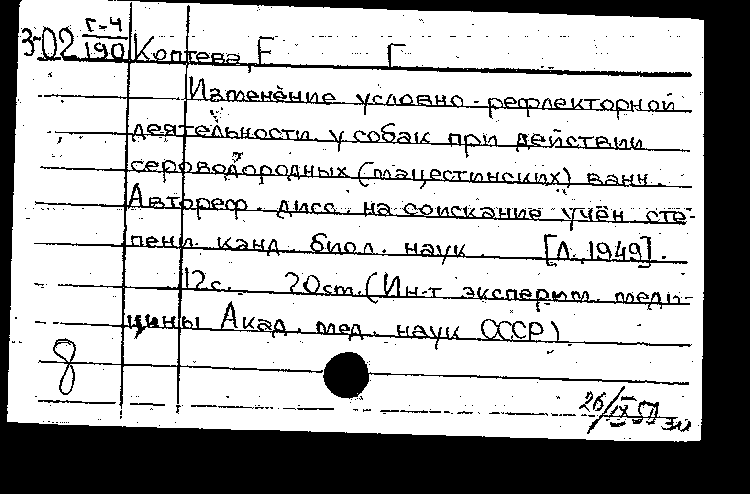 З-02 Г-4/190 Коптева, Е Г
Изменение условно-рефлекторной
деятельности у собак при действии
сероводородных (мацестинских) ванн.
Автореф. дисс. на соискание учён. сте-
пени канд. биол. наук. [Л., 1949].
12с. 20см. (Ин-т эксперим. меди-
цины Акад. мед. наук СССР)
8
26/IX 51